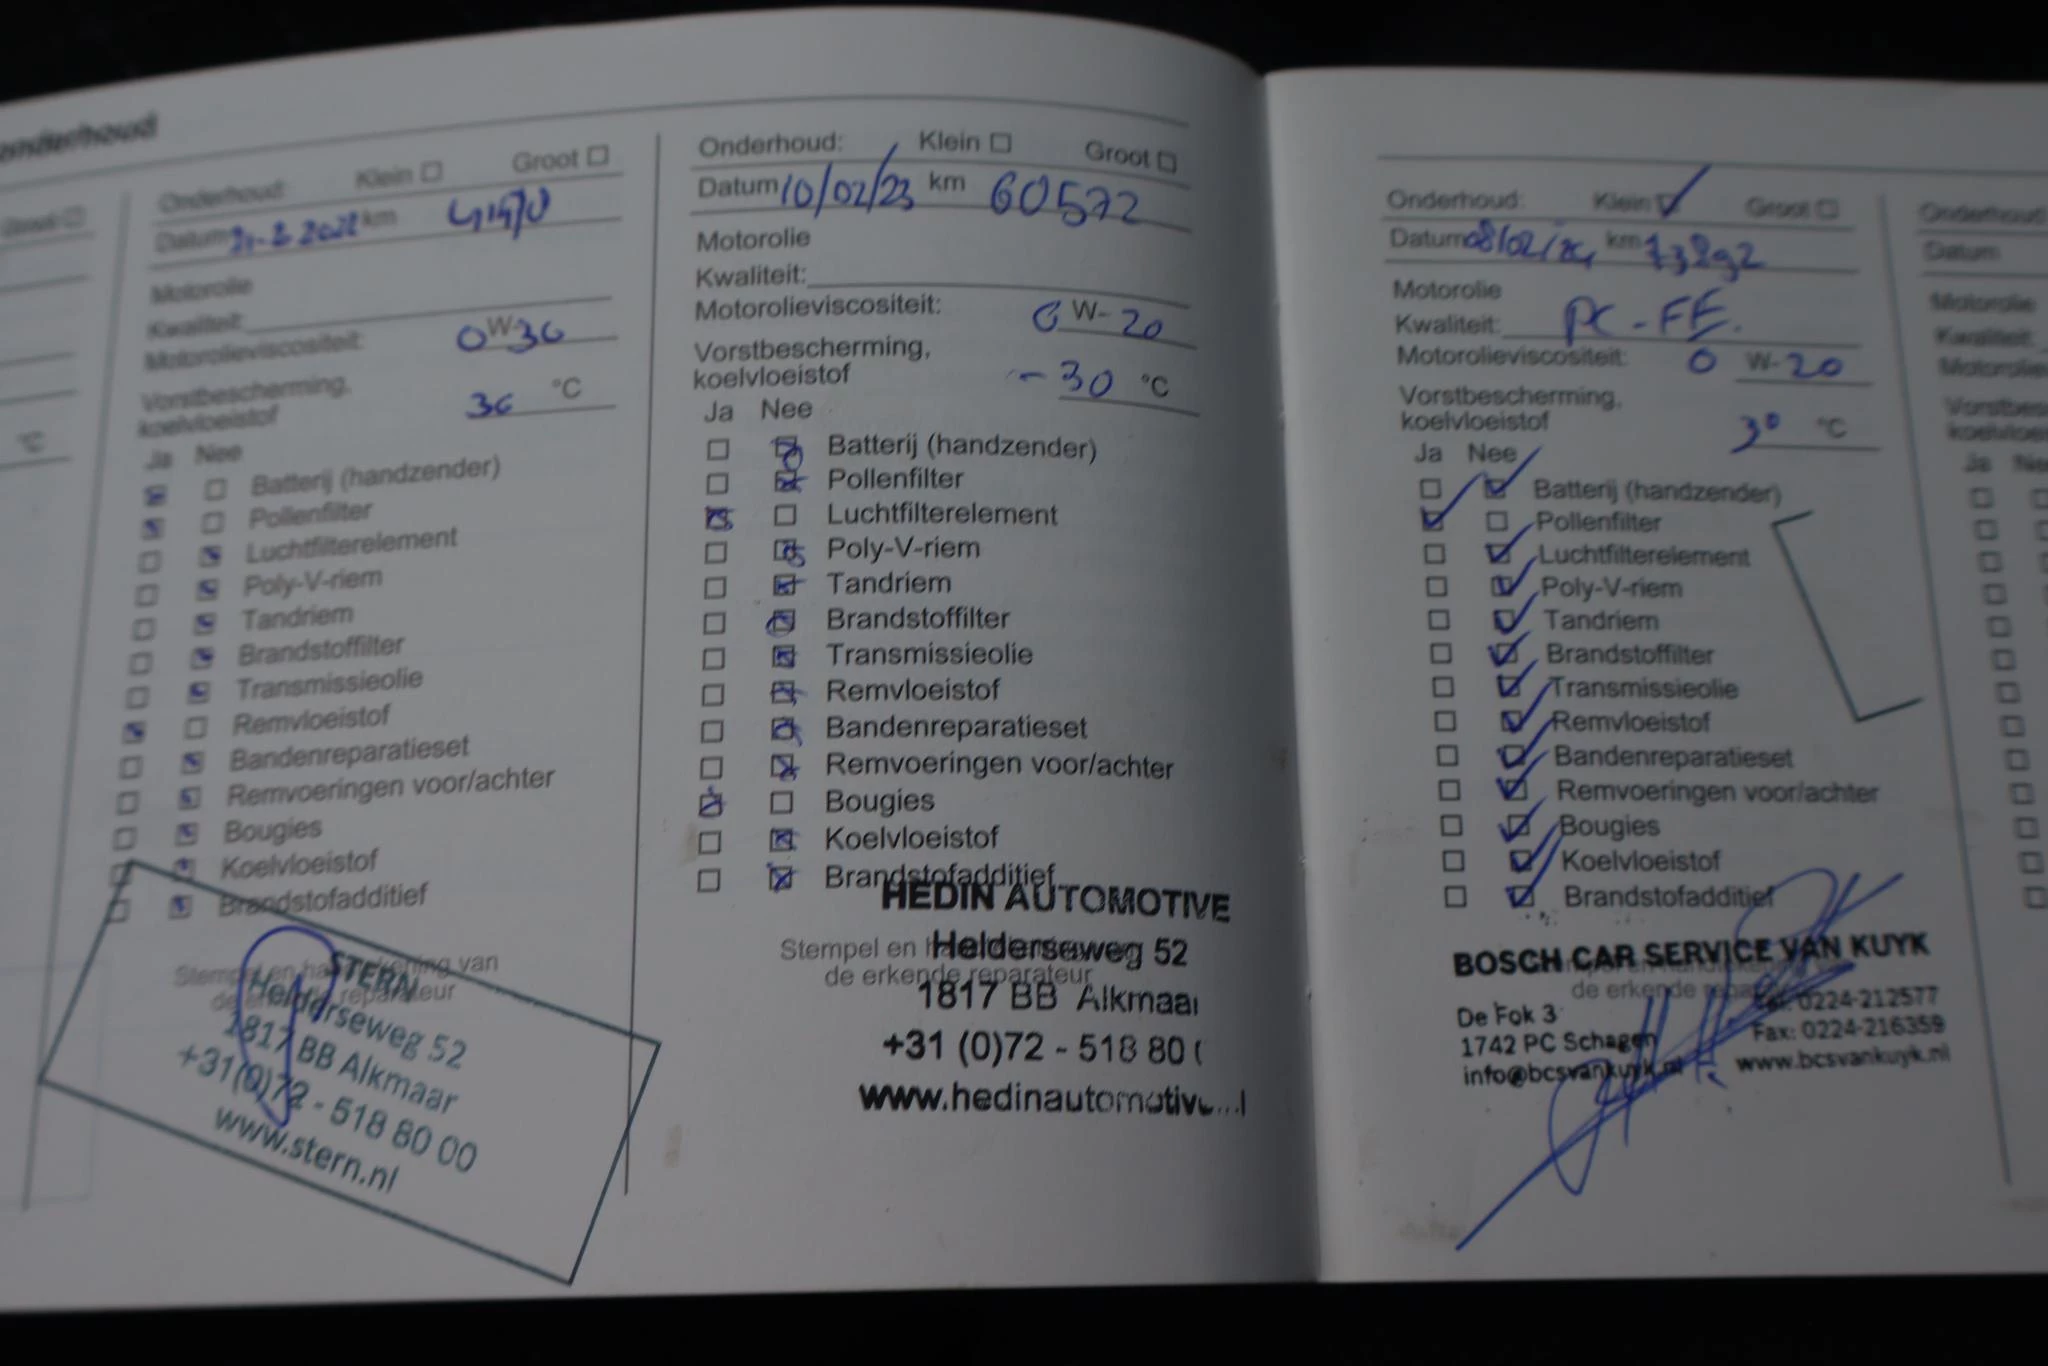 onderhoud
Groot
°C
Onderhoud: Klein Groot
Datum km
Motorolie
Kwaliteit:
Motorolieviscositeit: 0 W-30
Vorstbescherming,
koelvloeistof 30 °C
Ja Nee
Batterij (handzender)
Pollenfilter
Luchtfilterelement
Poly-V-riem
Tandriem
Brandstoffilter
Transmissieolie
Remvloeistof
Bandenreparatieset
Remvoeringen voor/achter
Bougies
Koelvloeistof
Brandstofadditief
Stempel en handtekening van
de erkende reparateur
STERN
Helderseweg 52
1817 BB Alkmaar
+31(0)72 - 518 80 00
www.stern.nl
Onderhoud: Klein Groot
Datum 10/02/23 km 60572
Motorolie
Kwaliteit:
Motorolieviscositeit: 0 W- 20
Vorstbescherming,
koelvloeistof - 30 °C
Ja Nee
Batterij (handzender)
Pollenfilter
Luchtfilterelement
Poly-V-riem
Tandriem
Brandstoffilter
Transmissieolie
Remvloeistof
Bandenreparatieset
Remvoeringen voor/achter
Bougies
Koelvloeistof
Brandstofadditief
Stempel en
de erkende reparateur
HEDIN AUTOMOTIVE
Helderseweg 52
1817 BB Alkmaar
+31 (0)72 - 518 80
www.hedinautomotive
Onderhoud: Klein Groot
Datum 08/02/24 km 73892
Motorolie
Kwaliteit: PC - FE.
Motorolieviscositeit: 0 W- 20
Vorstbescherming,
koelvloeistof 30 °C
Ja Nee
Batterij (handzender)
Pollenfilter
Luchtfilterelement
Poly-V-riem
Tandriem
Brandstoffilter
Transmissieolie
Remvloeistof
Bandenreparatieset
Remvoeringen voor/achter
Bougies
Koelvloeistof
Brandstofadditief
de erkende
BOSCH CAR SERVICE VAN KUYK
De Fok 3 Tel: 0224-212577
1742 PC Schagen Fax: 0224-216359
info@bcsvankuyk.nl www.bcsvankuyk.nl
Onderhoud:
Datum
Motorolie
Kwaliteit:
Ja